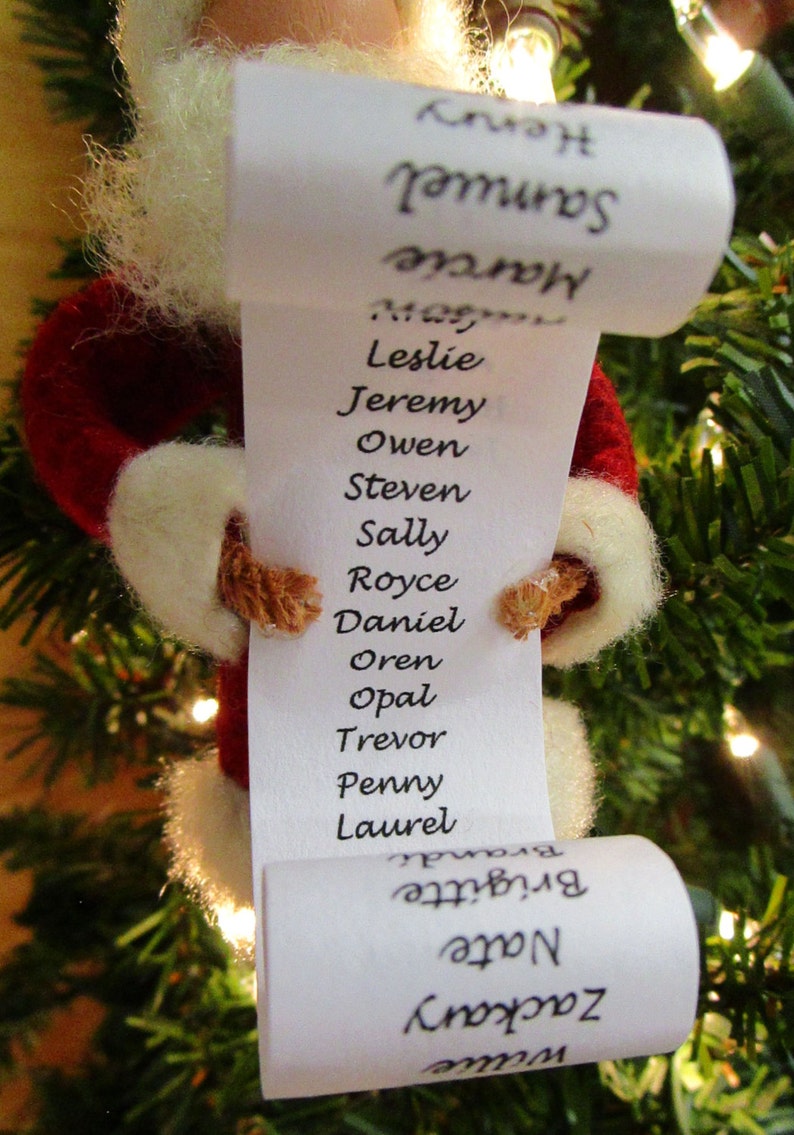 Henry
Samuel
Marcie
Leslie
Jeremy
Owen
Steven
Sally
Royce
Daniel
Oren
Opal
Trevor
Penny
Laurel
Brandi
Brigitte
Nate
Zackary
Willie